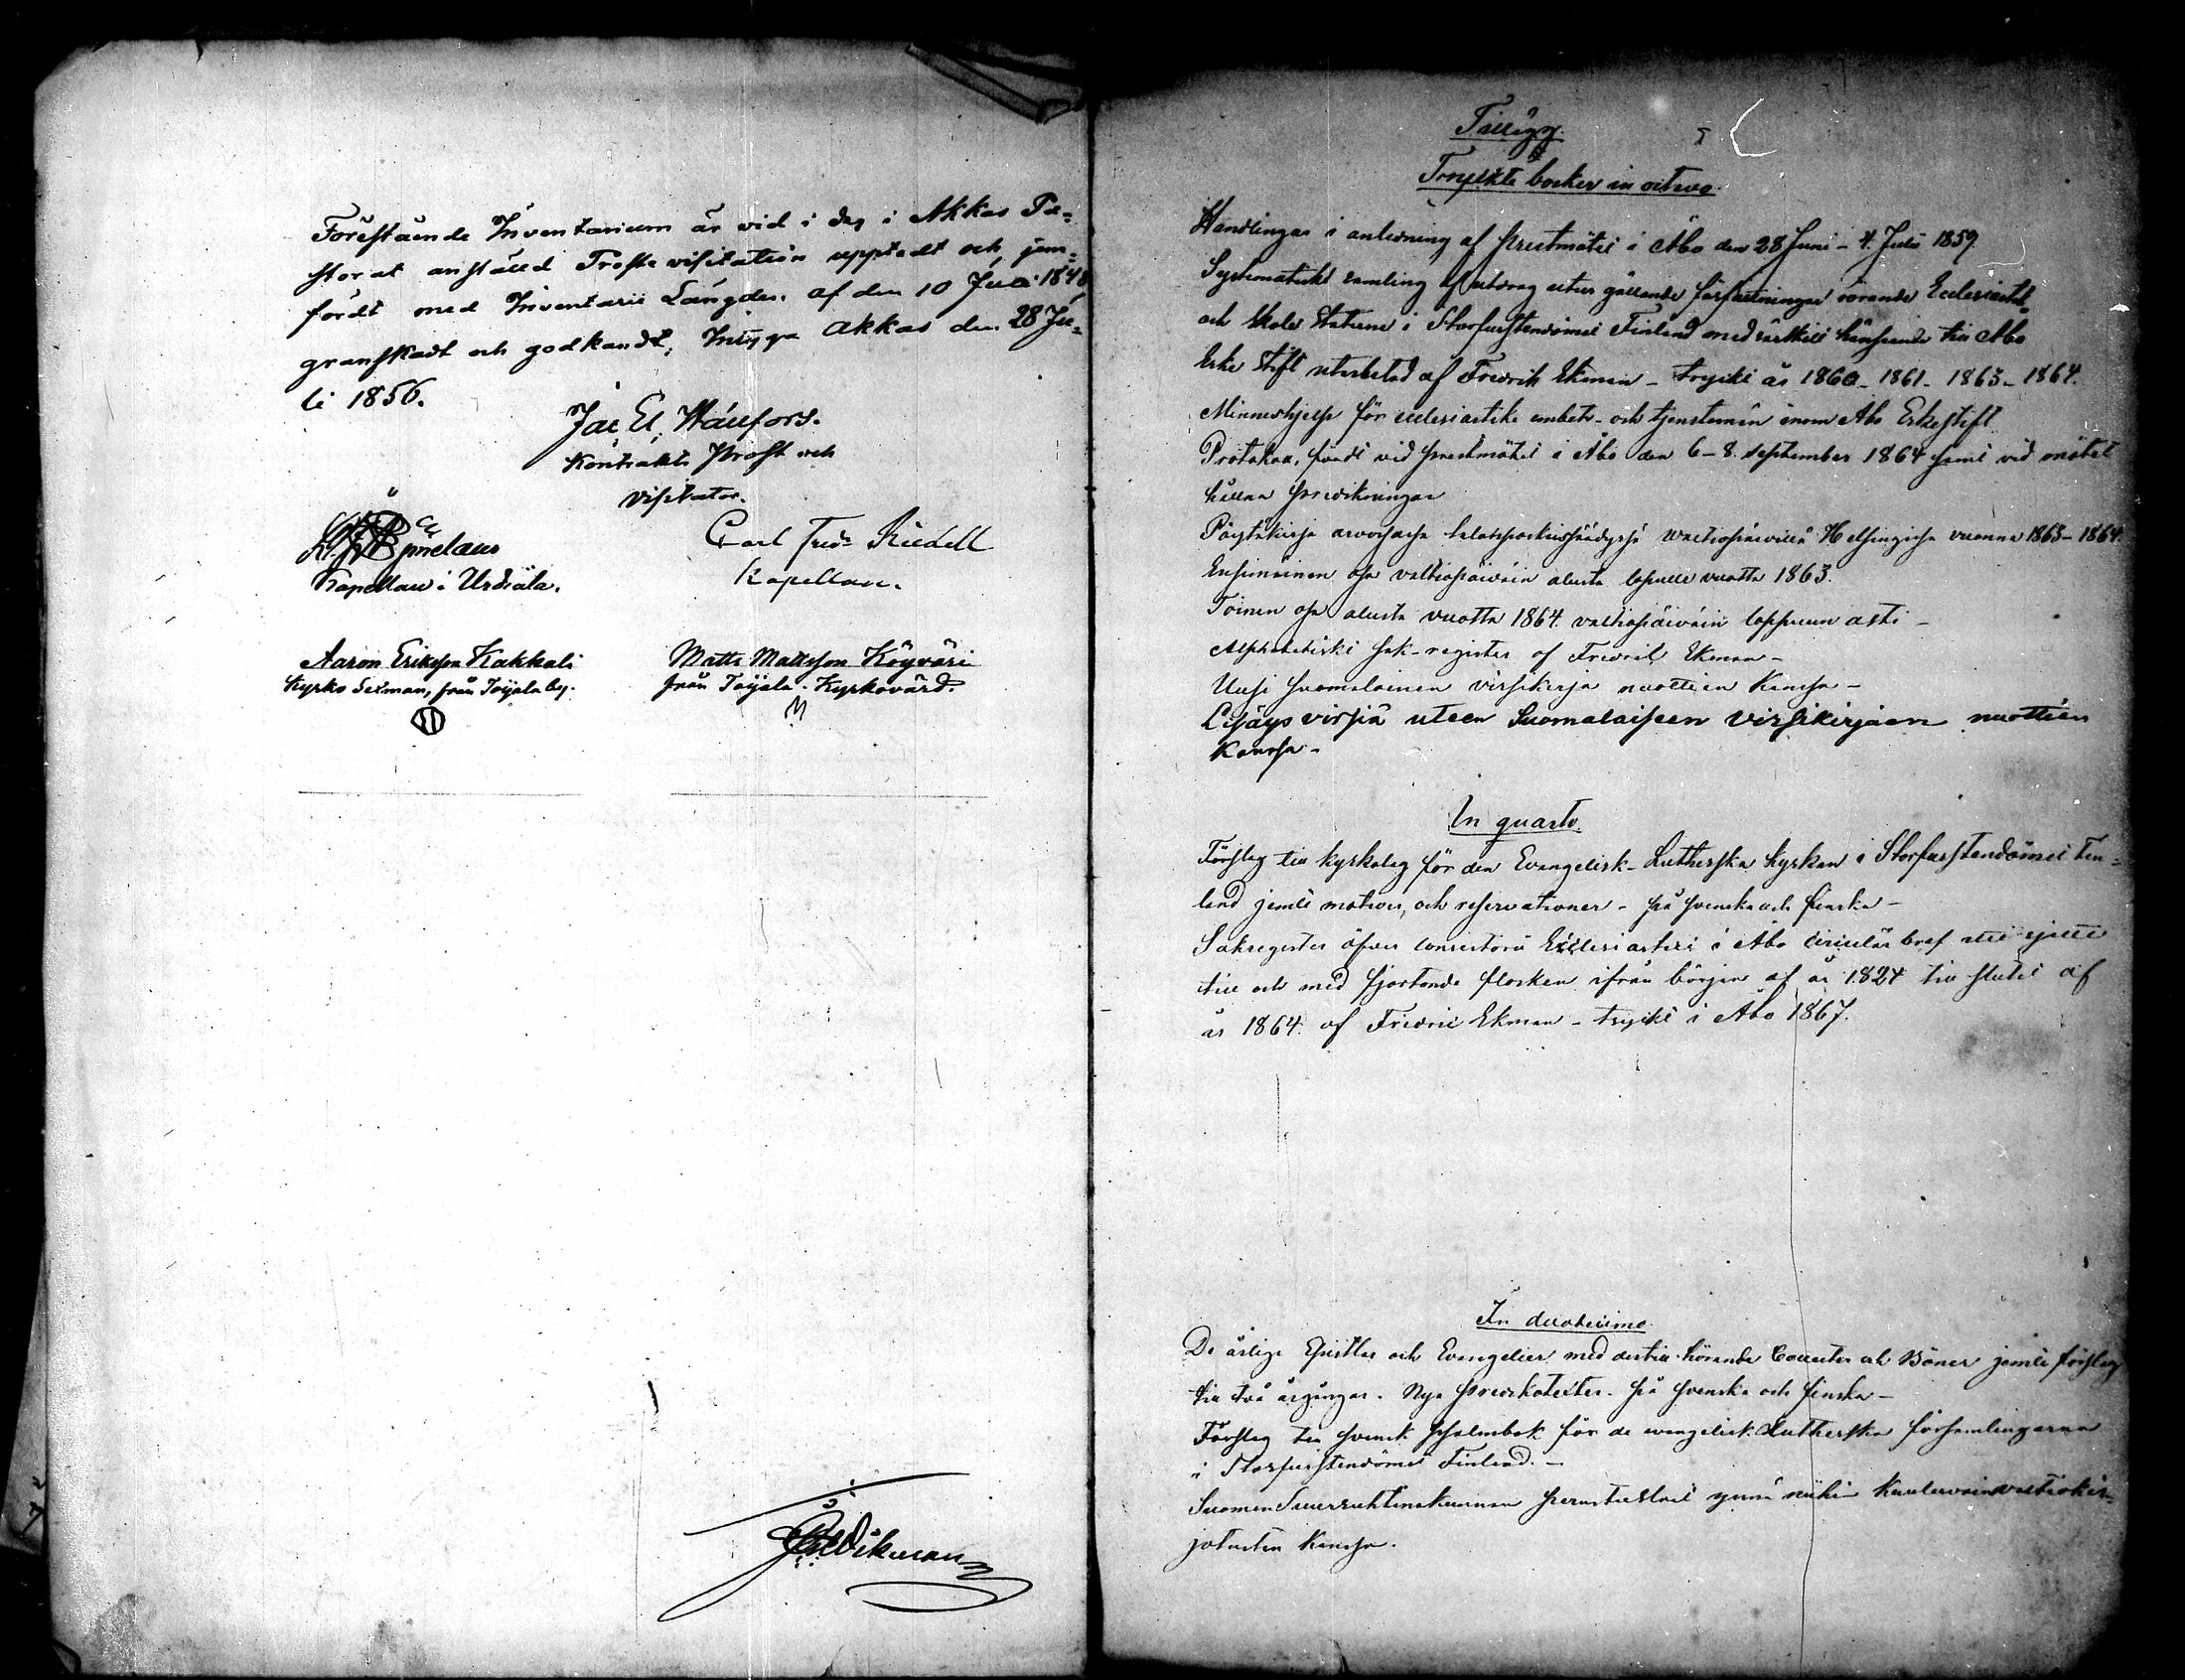 Förestående Inventarium är vid i dag i Akkas Pa=
storat anstäld Prostevisitation upptedt och jem=
fördt med Inventarii Längden af den 10 Juli 1848
granskadt och godkändt, Intyga Akkas den 28 Ju=
li 1856.
Jac El, Wänfors.
Kontrakts Prost och
Visitator.
Björclaus
Kapellan i Urdiala.
Carl Fredr Riedell
Kapellan.
Aaron Eriksson Kakkali
Kyrko Sexman, från Toijala by.
Matts Mattsson Köyväri
från Toijala. Kyrkovärd.
Tillägg.
Tryckta böcker in octavo.
Handlingar i anledning af Prestmötet i Åbo den 28 Juni - 4. Julii 1859.
Systematiskt samling af utdrag utur gällande författningar rörande Ecclesiastik
och Skole Staterne i Storfurstendömet Finland med särskilt hänseende till Åbo
Erke Stift utarbetad af Fredrik Ekman - tryckt år 1860 - 1861 - 1863 - 1864.
Minneshjelp för ecclesiastike embets- och tjenstemän inom Åbo Erkestift
Protokoll, fördt vid prestmötet i Åbo den 6-8. september 1864 samt vid mötet
hållna predikningar
Pöytäkirja arvoisassa talonpoikaissäädyssä waltiopäivillä Helsingissä vuonna 1863-1864.
Ensimäinen osa valtiopäiväin alusta lopulle vuotta 1863.
Toinen osa alusta vuotta 1864 valtiopäiväin loppuun asti -
Alphabetiskt sak-register af Fredrik Ekman -
Uusi suomalainen virsikirja nuottien kanssa -
Lisäys virsiä uteen Suomalaiseen Virsikirjaan nuottien
kanssa -
In quarto.
Förslag till kyrkolag för den Evangelisk-Lutherska kyrkan i Storfurstendömet Fin=
land jemte motiver, och reservationer - på svenska och finska -
Sakregister öfver Consistorii Ecclesiastici i Åbo circulär bref
till och med fjortonde flocken ifrån början af år 1824 till slutet af
år 1864. af Fredric Ekman - tryckt i Åbo 1867.
In duodecimo.
De årliga Epistlar och Evangelier med dertill hörande Collecter och Böner jemte förslag
till två årgångar. Nya predikotexter. på svenska och finska -
Förslag till svensk psalmbok för de evangelisk-Lutherska församlingarna
i Storfurstendömet Finland. -
Suomen Suuriruhtinakunnan perustuslait ynnä niihin kuuluvain valtiokir=
jotusten kanssa.